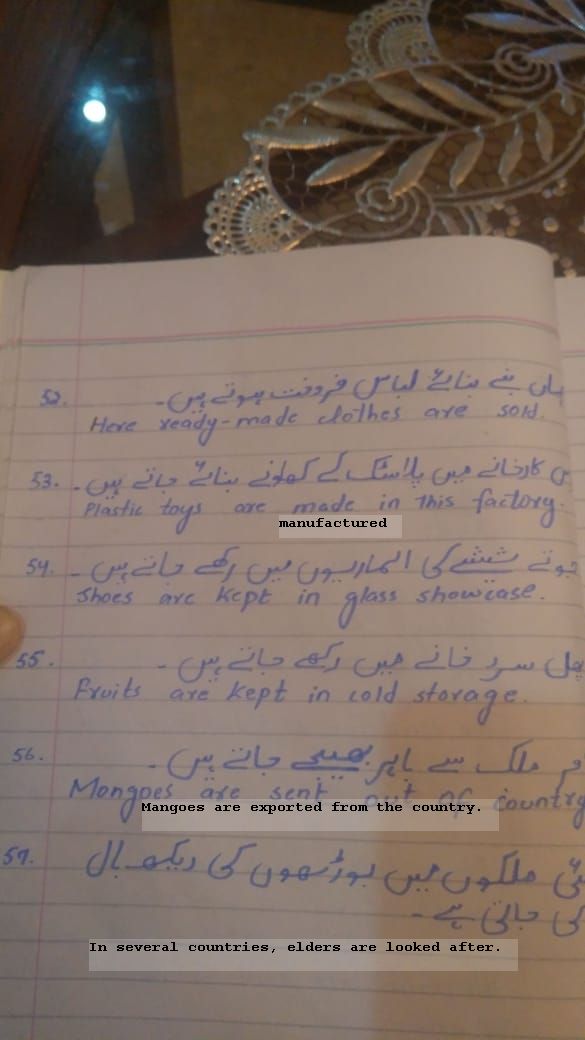 52. ہاں بنے بنائے لباس فروخت ہوتے ہیں۔
Here ready-made clothes are sold.
53. س کارخانے میں پلاسٹک کے کھلونے بنائے جاتے ہیں۔
Plastic toys are made in this factory.
manufactured
54. جوتے شیشے کی الماریوں میں رکھے جاتے ہیں۔
Shoes are kept in glass showcase.
55. پھل سرد خانے میں رکھے جاتے ہیں۔
Fruits are kept in cold storage.
56. م ملک سے باہر بھیجے جاتے ہیں۔
Mongoes are sent out of country
Mangoes are exported from the country.
57. ئی ملکوں میں بوڑھوں کی دیکھ بال
کی جاتی ہے۔
In several countries, elders are looked after.